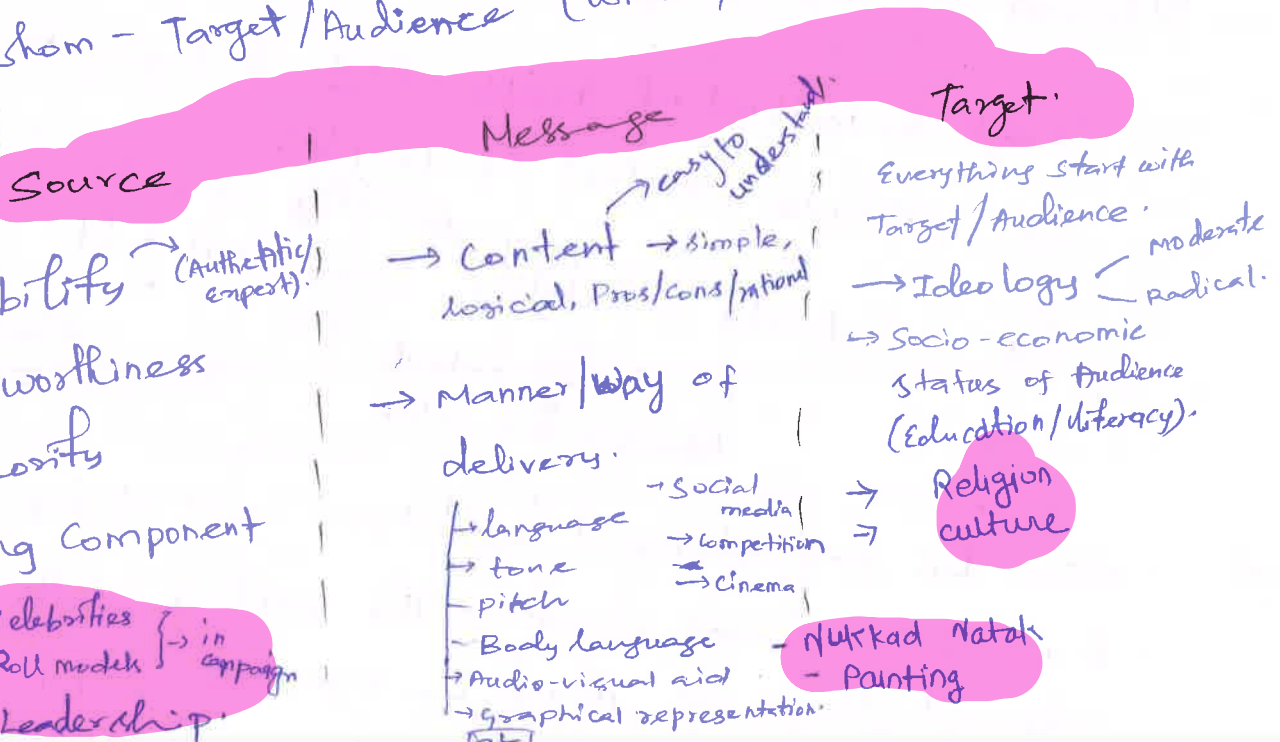 shom - Target/Audience
Source
bility → (Authentic/
expert).
worthiness
ority
ng Component
elebrities
Roll models } → in
campaign
Leadership.
Message
→ Content → simple,
→ easy to
understand.
logical, Pros/cons/rational
→ Manner/way of
delivery.
→ language
→ tone
- pitch
- Body language
→ Audio-visual aid
→ graphical representation.
→ social
media
→ competition
→ cinema
- Nukkad Natak
- Painting
Target.
Everything start with
Target/Audience.
→ Ideology
Moderate
Radical.
→ Socio-economic
status of Audience
(Education/literacy).
→ Religion
→ culture